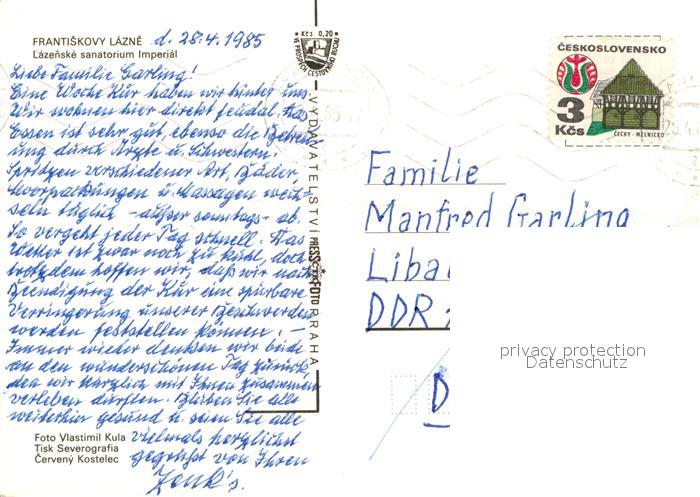 FRANTIŠKOVY LÁZNĚ d. 28.4.1985
Lázeňské sanatorium Imperiál
Liebe Familie Garling!
Eine Woche Kur haben wir hinter uns.
Wir wohnen hier direkt feudal. Das
Essen ist sehr gut, ebenso die Betreu-
ung durch Ärzte u. Schwestern.
Spritzen verschiedener Art, Bäder,
Moorpackungen u. Massagen wech-
seln täglich - außer sonntags - ab.
So vergeht jeder Tag schnell. Das
Wetter ist zwar noch zu kühl, doch
trotzdem hoffen wir, daß wir nach
Beendigung der Kur eine spürbare
Verringerung unserer Beschwerden
werden feststellen können. -
Immer wieder denken wir beide
an den wunderschönen Tag zurück,
den wir kürzlich mit Ihnen zusammen
verleben durften. Bleiben Sie alle
weiterhin gesund u. seien Sie alle
vielmals herzlichst
gegrüßt von Ihren
Zenk's.
Foto Vlastimil Kula
Tisk Severografia
Červený Kostelec
Kčs 0,20
VE PROSPĚCH CESTOVNÍHO RUCHU
VYDAVATELSTVÍ PRESSFOTO PRAHA
ČESKOSLOVENSKO
3
Kčs
ČECHY - MĚLNICKO
Familie
Manfred Garling
Liba
DDR
D
privacy protection
Datenschutz